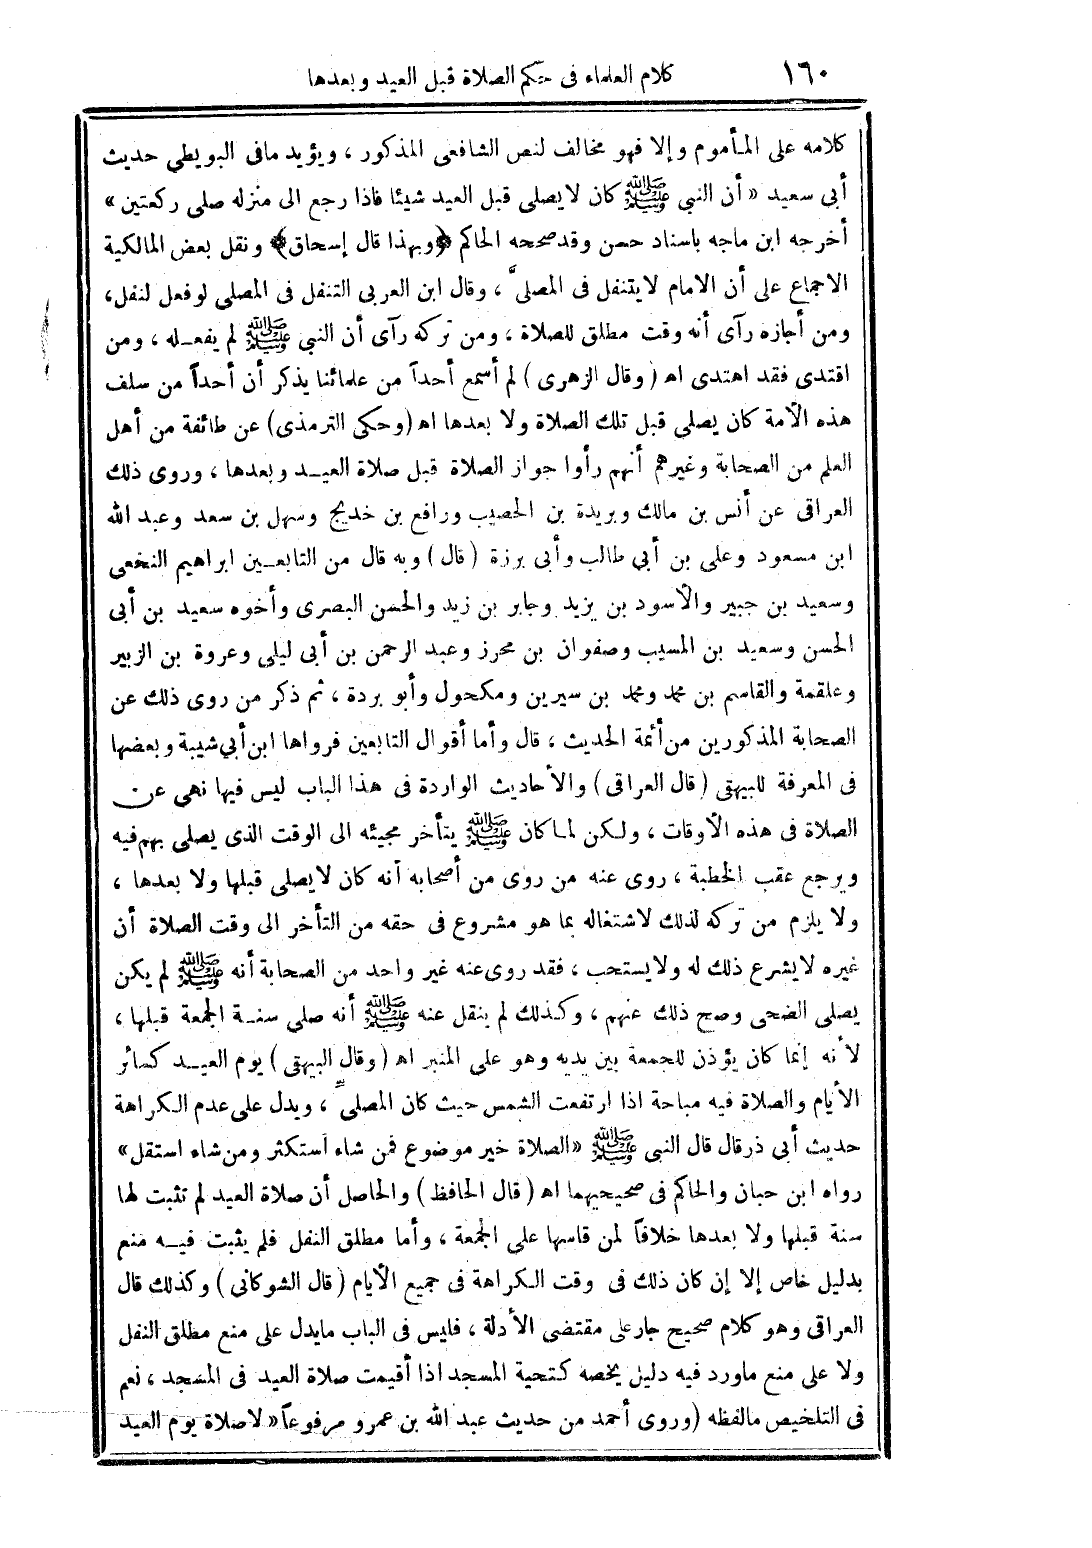 ١٦٠
كلام العلماء فى حكم الصلاة قبل العيد وبعدها
كلامه على المأموم وإلا فهو مخالف لنص الشافعى المذكور ، ويؤيد مافى البويطي حديث
أبى سعيد « أن النبي ﷺ كان لايصلى قبل العيد شيئا فاذا رجع الى منزله صلى ركعتين »
أخرجه ابن ماجه باسناد حسن وقدصححه الحاكم ﴿وبهذا قال إسحاق﴾ ونقل بعض المالكية
الاجماع على أن الامام لايتنفل فى المصلى ، وقال ابن العربى التنفل فى المصلى لوفعل لنفل،
ومن أجازه رآى أنه وقت مطلق للصلاة ، ومن تركه رآى أن النبي ﷺ لم يفعـله ، ومن
اقتدى فقد اهتدى اه ( وقال الزهرى ) لم أسمع أحداً من علمائنا يذكر أن أحداً من سلف
هذه الأمة كان يصلى قبل تلك الصلاة ولا بعدها اه (وحكى الترمذى) عن طائفة من أهل
العلم من الصحابة وغيرهم أنهم رأوا جواز الصلاة قبل صلاة العيـد وبعدها ، وروى ذلك
العراقى عن أنس بن مالك وبريدة بن الحصيب ورافع بن خديج وسهل بن سعد وعبد الله
ابن مسعود وعلى بن أبي طالب وأبى برزة ( قال ) وبه قال من التابعـين ابراهيم النخعى
وسعيد بن جبير والأسود بن يزيد وجابر بن زيد والحسن البصرى وأخوه سعيد بن أبى
الحسن وسعيد بن المسيب وصفوان بن محرز وعبد الرحمن بن أبى ليلى وعروة بن الزبير
وعلقمة والقاسم بن محمد ومحمد بن سيرين ومكحول وأبو بردة ، ثم ذكر من روى ذلك عن
الصحابة المذكورين من أئمة الحديث ، قال وأما أقوال التابعين فرواها ابن أبي شيبة وبعضها
فى المعرفة للبيهقى ( قال العراقى ) والأحاديث الواردة فى هذا الباب ليس فيها نهى عن
الصلاة فى هذه الأوقات ، ولـكن لمـاكان ﷺ يتأخر مجيئه الى الوقت الذى يصلى بهم فيه
ويرجع عقب الخطبة ، روى عنه من روى من أصحابه أنه كان لايصلى قبلها ولا بعدها ،
ولا يلزم من تركه لذلك لاشتغاله بما هو مشروع فى حقه من التأخر الى وقت الصلاة أن
غيره لايشرع ذلك له ولايستحب ، فقد روى عنه غير واحد من الصحابة أنه ﷺ لم يكن
يصلى الضحى وصح ذلك عنهم ، وكـذلك لم ينقل عنه ﷺ أنه صلى سنـة الجمعة قبلها ،
لأنه إنما كان يؤذن للجمعة بين يديه وهو على المنبر اه ( وقال البيهقى ) يوم العيـد كسائر
الأيام والصلاة فيه مباحة اذا ارتفعت الشمس حيث كان المصلى ، ويدل على عدم الـكراهة
حديث أبى ذر قال قال النبى ﷺ «الصلاة خير موضوع فمن شاء استكثر ومن شاء استقل»
رواه ابن حبان والحاكم فى صحيحيهما اه ( قال الحافظ ) والحاصل أن صلاة العيد لم تثبت لها
سنة قبلها ولا بعدها خلافاً لمن قاسها على الجمعة ، وأما مطلق النفل فلم يثبت فيـه منع
بدليل خاص إلا إن كان ذلك فى وقت الـكراهة فى جميع الأيام ( قال الشوكانى ) وكذلك قال
العراقى وهو كلام صحيح جار على مقتضى الأدلة ، فليس فى الباب مايدل على منع مطلق النفل
ولا على منع ماورد فيه دليل يخصه كتحية المسجد اذا أقيمت صلاة العيد فى المسجد ، نعم
فى التلخيص مالفظه (وروى أحمد من حديث عبد الله بن عمرو مرفوعاً « لاصلاة يوم العيد